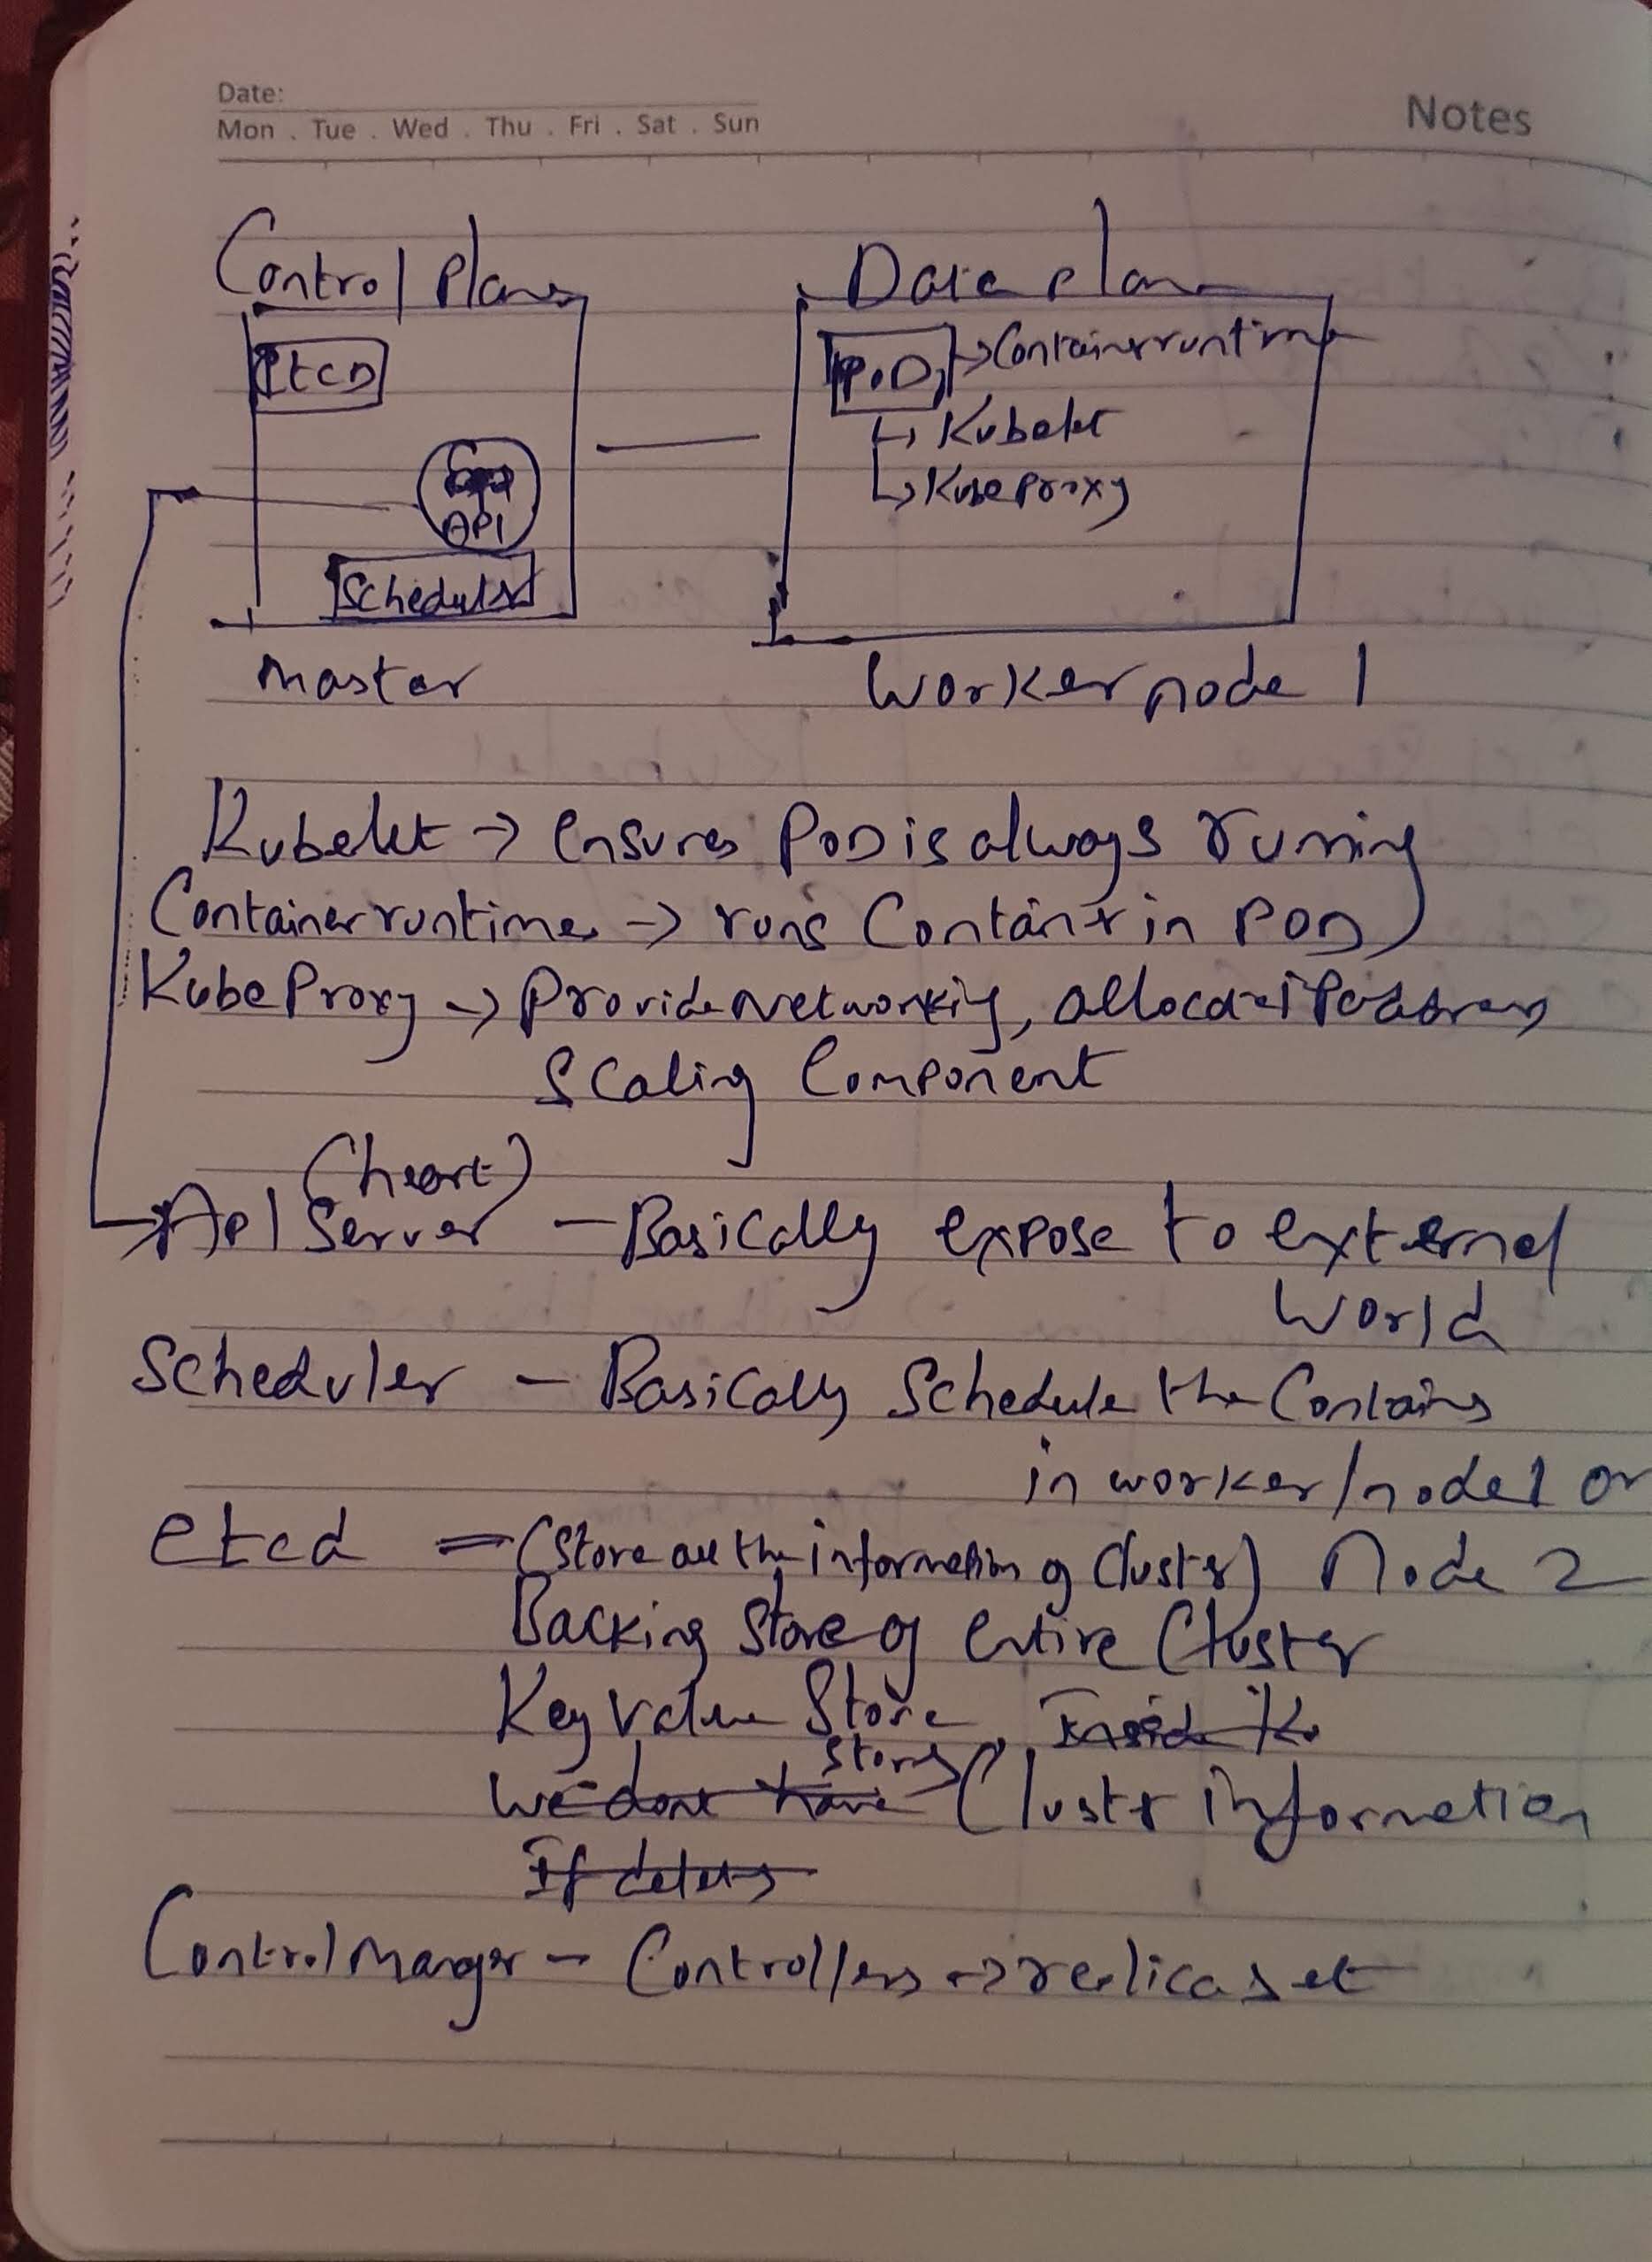 Date:
Mon . Tue . Wed . Thu . Fri . Sat . Sun
Notes
Control Plane
Data plane
etcD
POD → Container runtime
↳ Kubelet
↳ Kube Proxy
API
Scheduler
master
Worker node 1
Kubelet → ensures POD is always running
Container runtime → runs Container in POD
Kube Proxy → Provide networking, allocate iP address
Scaling Component
(heart)
→ Api Server — Basically expose to external
World
Scheduler — Basically Schedule the Contains
in worker/node 1 or
etcd = (Store all the information of Cluster) Node 2
Backing Store of entire Cluster
Key Value Store Inside K
stores
We dont have Cluster information
If deletes
Control Manger — Controllers → replica set